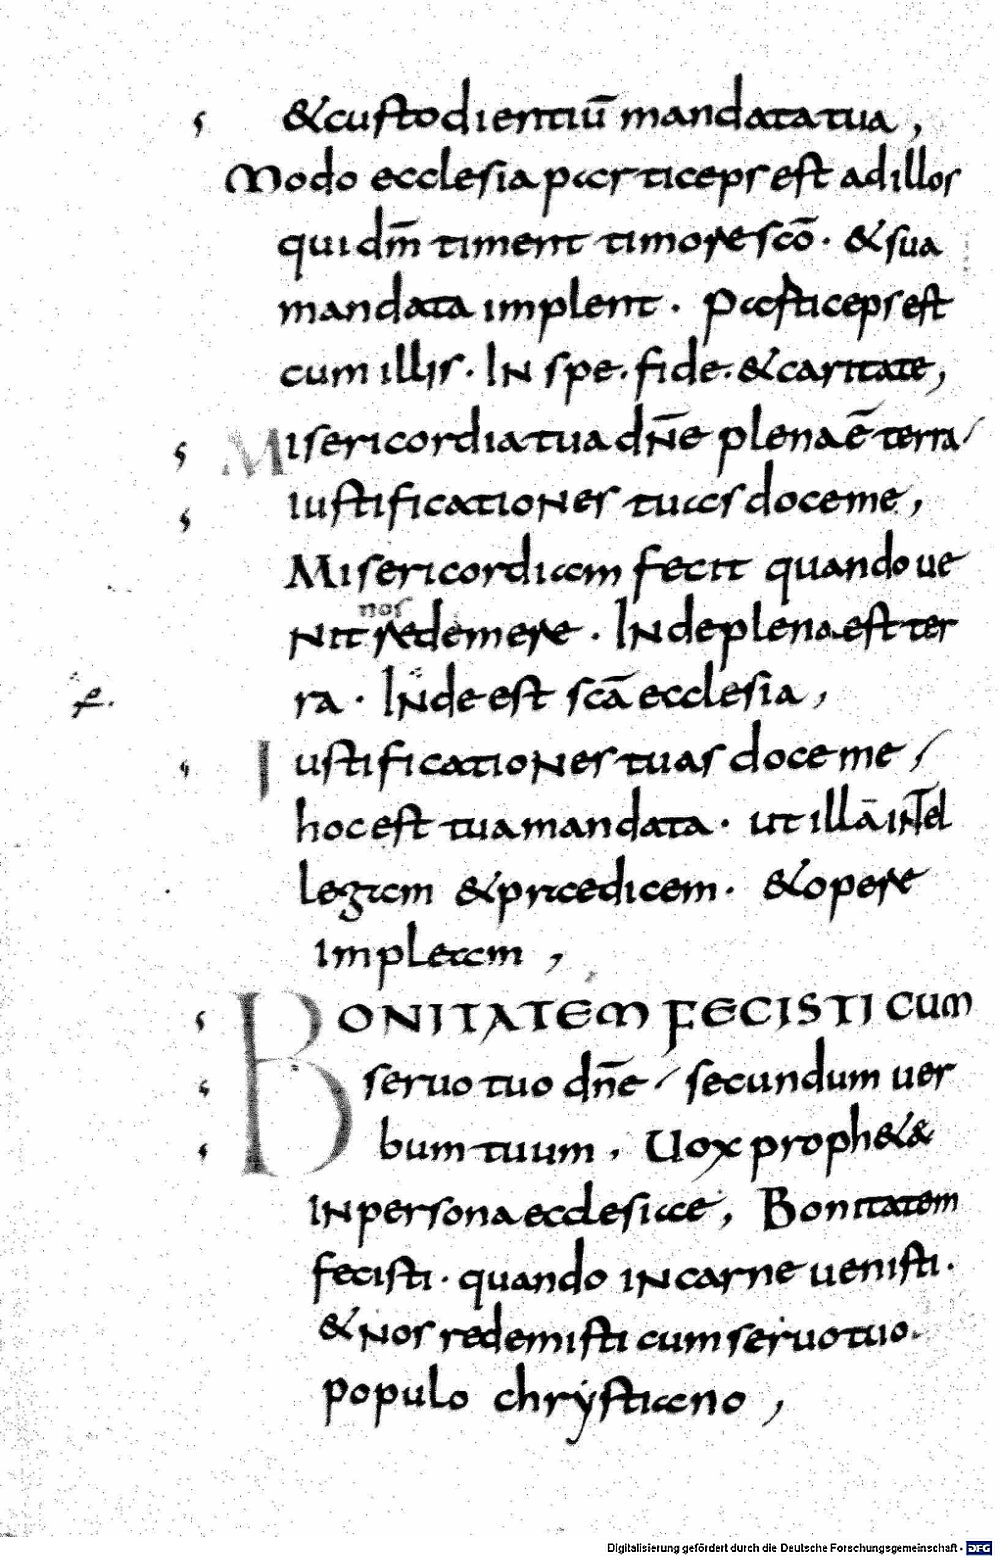 &custodientiū mandata tua,
Modo ecclesia particeps est ad illos
qui dm̄ timent timore scō · & sua
mandata implent · Particeps est
cum illis · In spe · fide · & caritate,
Misericordia tua dn̄e plena ē terra/
iustificationes tuas doce me,
Misericordiam fecit quando ue
nos
nit redemere · Inde plena est ter
ra · Inde est scā ecclesia,
Iustificationes tuas doce me/
hoc est tua mandata · ut illā intel
legam & praedicem · & opere
impleam,
BONITATEM FECISTI cum
seruo tuo dn̄e/ secundum uer
bum tuum, Uox proph&ae
in persona ecclesiae, Bonitatem
fecisti · quando in carne uenisti ·
& nos redemisti cum seruo tuo ·
populo chrystiano,
Digitalisierung gefördert durch die Deutsche Forschungsgemeinschaft - DFG